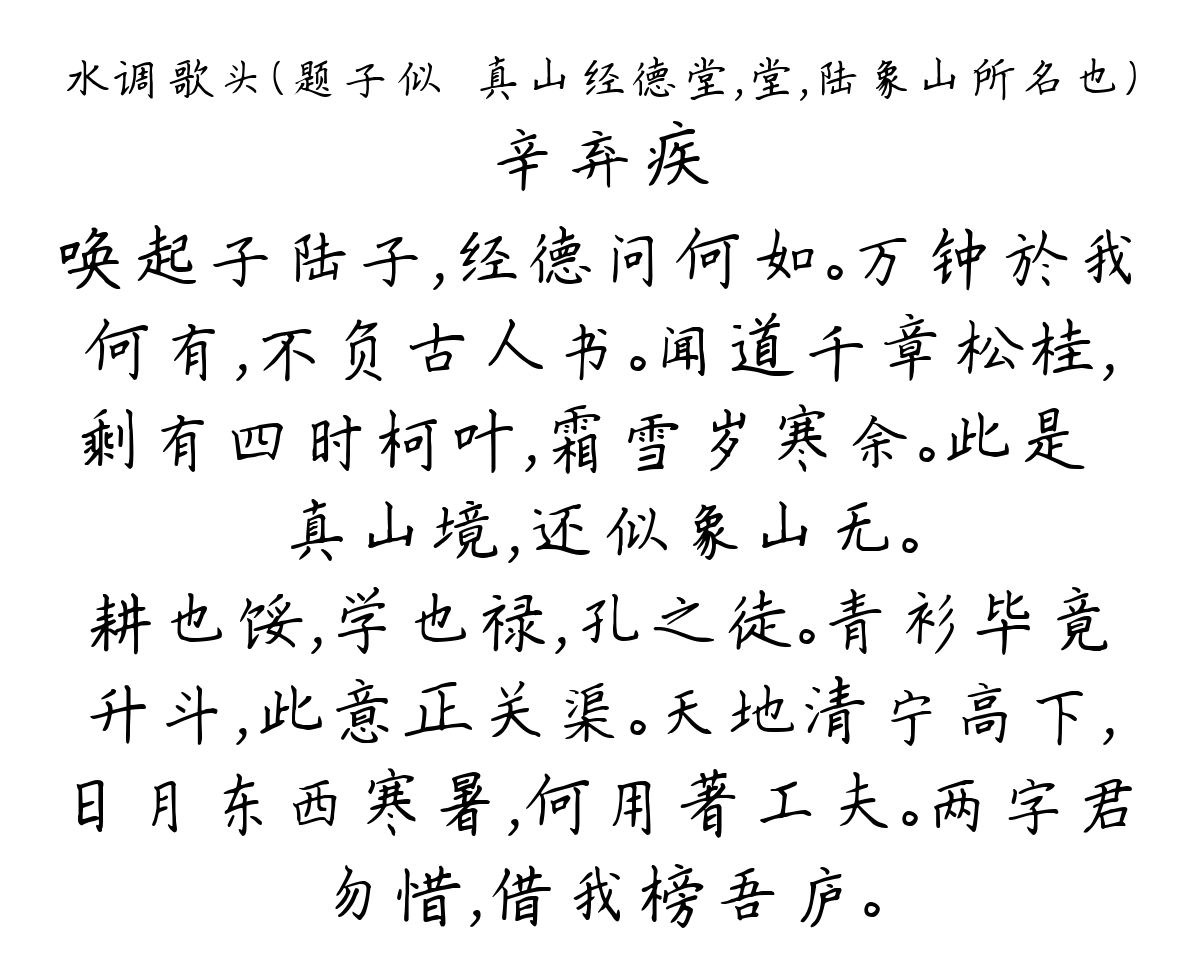 水调歌头(题子似 真山经德堂,堂,陆象山所名也)
辛弃疾
唤起子陆子,经德问何如。万钟於我
何有,不负古人书。闻道千章松桂,
剩有四时柯叶,霜雪岁寒余。此是
真山境,还似象山无。
耕也馁,学也禄,孔之徒。青衫毕竟
升斗,此意正关渠。天地清宁高下,
日月东西寒暑,何用著工夫。两字君
勿惜,借我榜吾庐。